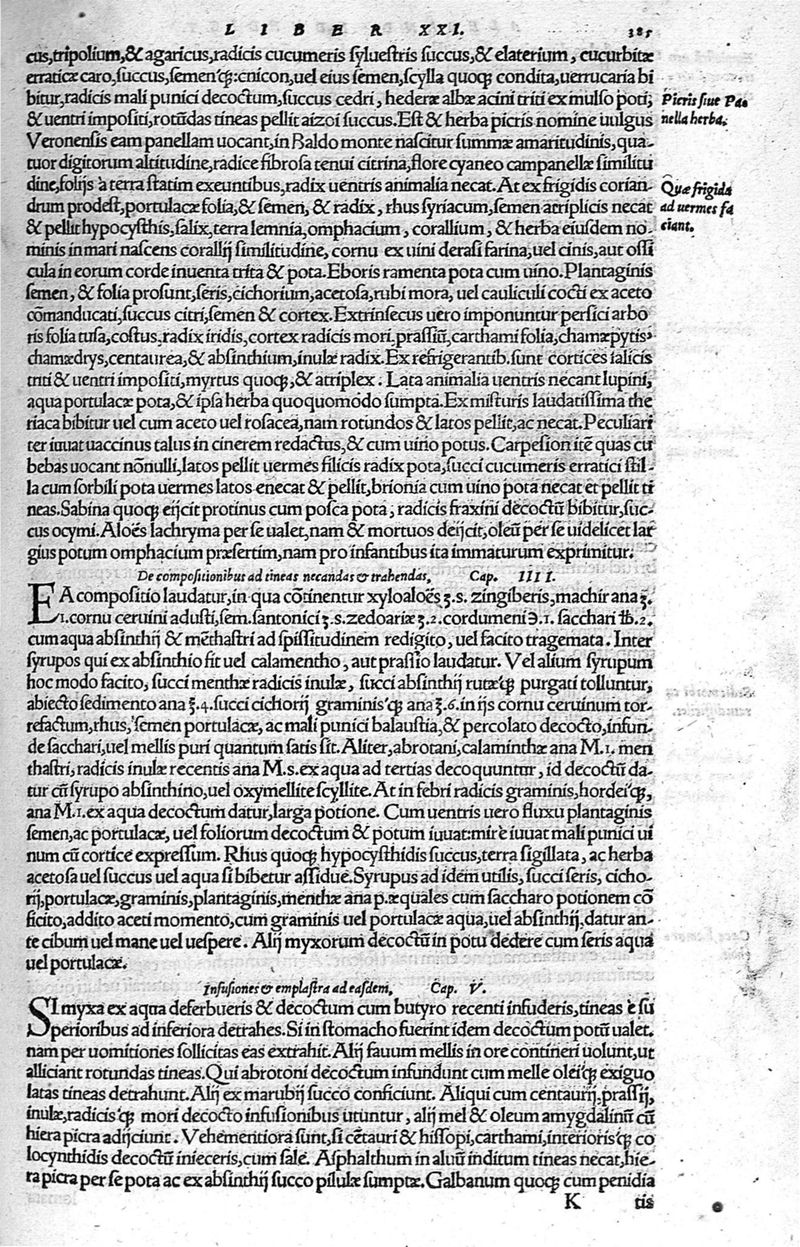 LIBER XXI. 385
cus,tripolium,& agaricus,radicis cucumeris syluestris succus,& elaterium, cucurbitæ
erraticæ caro,succus,semenq́ꝫ:cnicon,uel eius semen,scylla quoqꝫ condita,uerrucaria bi
bitur,radicis mali punici decoctum,succus cedri, hederæ albæ acini triti ex mulso poti;
& uentri impositi,rotūdas tineas pellit aizoi succus.Est & herba picris nomine uulgus
Veronensis eam panellam uocant,in Baldo monte nascitur summæ amaritudinis,qua-
tuor digitorum altitudine,radice fibrosa tenui citrina,flore cyaneo campanellæ similitu
dine,folijs à terra statim exeuntibus,radix uentris animalia necat. At ex frigidis corian-
drum prodest,portulacæ folia,& semen, & radix, rhus syriacum,semen atriplicis necat
& pellit hypocysthis,salix,terra lemnia,omphacium, corallium, & herba eiusdem no-
minis in mari nascens corallij similitudine, cornu ex uini derasi farina,uel cinis,aut ossi
cula in eorum corde inuenta trita & pota.Eboris ramenta pota cum uino.Plantaginis
semen, & folia prosunt,seris,cichorium,acetosa,rubi mora, uel cauliculi cocti ex aceto
cōmanducati,succus citri,semen & cortex.Extrinsecus uero imponuntur persici arbo
ris folia tusa,costus,radix iridis,cortex radicis mori,prassiū,carthami folia,chamæpytis,
chamædrys,centaurea,& absinthium,inulæ radix.Ex refrigerantib.sunt cortices salicis
triti & uentri impositi,myrtus quoqꝫ,& atriplex. Lata animalia uentris necant lupini,
aqua portulacæ pota,& ipsa herba quoquomodo sumpta.Ex misturis laudatissima the
riaca bibitur uel cum aceto uel rosacea,nam rotundos & latos pellit,ac necat.Peculiari
ter iuuat uaccinus talus in cinerem redactus,& cum uino potus. Carpesion itē quas cu
bebas uocant nōnulli,latos pellit uermes filicis radix pota,succi cucumeris erratici stil-
la cum sorbili pota uermes latos enecat & pellit,brionia cum uino pota necat et pellit ti
neas.Sabina quoqꝫ eijcit protinus cum posca pota, radicis fraxini decoctū bibitur,suc-
cus ocymi. Aloës lachryma per se ualet,nam & mortuos deijcit,oleū per se uidelicet lar
gius potum omphacium præsertim,nam pro infantibus ita immaturum exprimitur.
Picris siue Pa
nella herba.
Quæ frigida
ad uermes fa
ciant.
De compositionibus ad tineas necandas & trahendas, Cap. IIII.
EA compositio laudatur,in qua cōtinentur xyloaloës ʒ.s. zingiberis,machir ana ʒ.
1.cornu ceruini adusti,sem.santonici ʒ.s.zedoariæ ʒ.2.cordumeni ℈.1. sacchari ℔.2.
cum aqua absinthij & mēthastri ad spissitudinem redigito, uel facito tragemata. Inter
syrupos qui ex absinthio fit uel calamentho, aut prassio laudatur. Vel alium syrupum
hoc modo facito, succi menthæ radicis inulæ, succi absinthij rutæq́ꝫ purgati tolluntur,
abiecto sedimento ana ʒ.4.succi cichorij graminisq́ꝫ ana ʒ.6.in ijs cornu ceruinum tor-
refactum,rhus, semen portulacæ, ac mali punici balaustia,& percolato decocto,infun-
de sacchari,uel mellis puri quantum satis sit. Aliter,abrotani,calaminthæ ana M.1. men
thastri,radicis inulæ recentis ana M.s.ex aqua ad tertias decoquuntur, id decoctū da-
tur cū syrupo absinthino,uel oxymellite scyllite. At in febri radicis graminis,hordeiq́ꝫ,
ana M.1.ex aqua decoctum datur,larga potione. Cum uentris uero fluxu plantaginis
semen,ac portulacæ, uel foliorum decoctum & potum iuuat:mirè iuuat mali punici ui
num cū cortice expressum. Rhus quoqꝫ hypocysthidis succus,terra sigillata, ac herba
acetosa uel succus uel aqua si bibetur assidue.Syrupus ad idem utilis, succi seris, cicho-
rij,portulacæ,graminis,plantaginis,menthæ ana p.æquales cum saccharo potionem cō
ficito,addito aceti momento,cum graminis uel portulacæ aqua,uel absinthij, datur an-
te cibum uel mane uel uespere. Alij myxorum decoctū in potu dedere cum seris aqua
uel portulacæ.
Infusiones & emplastra ad easdem, Cap. V.
SI myxa ex aqua deferbueris & decoctum cum butyro recenti infuderis,tineas è su
perioribus ad inferiora detrahes.Si in stomacho fuerint idem decoctum potū ualet,
nam per uomitiones sollicitas eas extrahit. Alij fauum mellis in ore contineri uolunt,ut
alliciant rotundas tineas.Qui abrotoni decoctum infundunt cum melle oleiq́ꝫ exiguo
latas tineas detrahunt. Alij ex marubij succo conficiunt. Aliqui cum centaurij,prassij,
inulæ,radicisq́ꝫ mori decocto infusionibus utuntur, alij mel & oleum amygdalinū cū
hiera picra adijciunt. Vehementiora sunt,si cētauri & hissopi,carthami,interiorisq́ꝫ co
locynthidis decoctū inieceris,cum sale. Asphalthum in aluū inditum tineas necat,hie-
ra picra per se pota ac ex absinthij succo pilulæ sumptæ.Galbanum quoqꝫ cum penidia
K tis